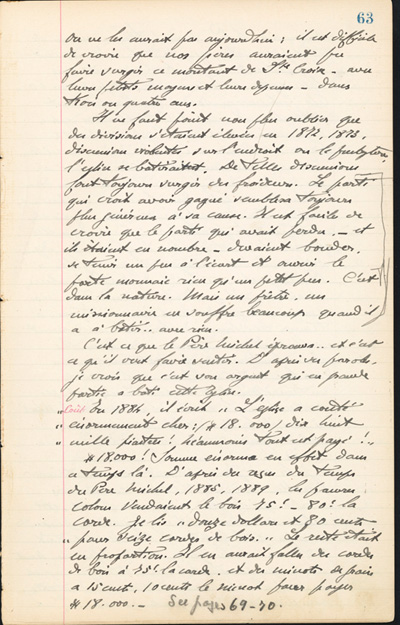 63
on ne les aurait pas aujourd'hui; il est difficile
de croire que nos pères auraient pu
faire surgir ce montant de Ste Croix - avec
leurs petits moyens et leurs disputes - dans
trois ou quatre ans.
Il ne faut point non plus oublier que
des divisions s'étaient élevées en 1872, 1873,
discussions violentes sur l'endroit où le presbytère,
l'église se bâtiraient. De telles discussions
font toujours surgir des froideurs. Le parti
qui croit avoir gagné semblera toujours
plus généreux à sa cause. Il est facile de
croire que le parti qui avait perdu - et
ils étaient en nombre - devaient bouder,
se tenir un peu à l'écart et ouvrir le
porte monnaie rien qu'un petit peu. C'est
dans la nature. Mais un prêtre, un
missionnaire en souffre beaucoup quand il
a à bâtir.. avec rien.
C'est ce que le Père Michel éprouva.. et c'est
ce qu'il veut faire sentir. D'après ses paroles,
je crois que c'est son argent qui en grande
partie a bâti cette église.
En 1884, il écrit "L'église a coûté
"énormément cher: ($18.000) dix huit
"mille piastres! néanmoins tout est payé!"
$18.000! Somme énorme en effet dans
ce temps là. D'après du temps
du Père Michel, 1885, 1889, les pauvres
colons vendaient le bois 75¢ - 80¢ la
corde. Je lis "douze dollars et 80 cents
"pour seize cordes de bois." Le reste était
en proportion. Il en aurait fallu des cordes
de bois à 75¢ la corde, et des minots de grain
à 15 cents, 10 cents le minot pour payer
$18.000.- See pages 69-70.